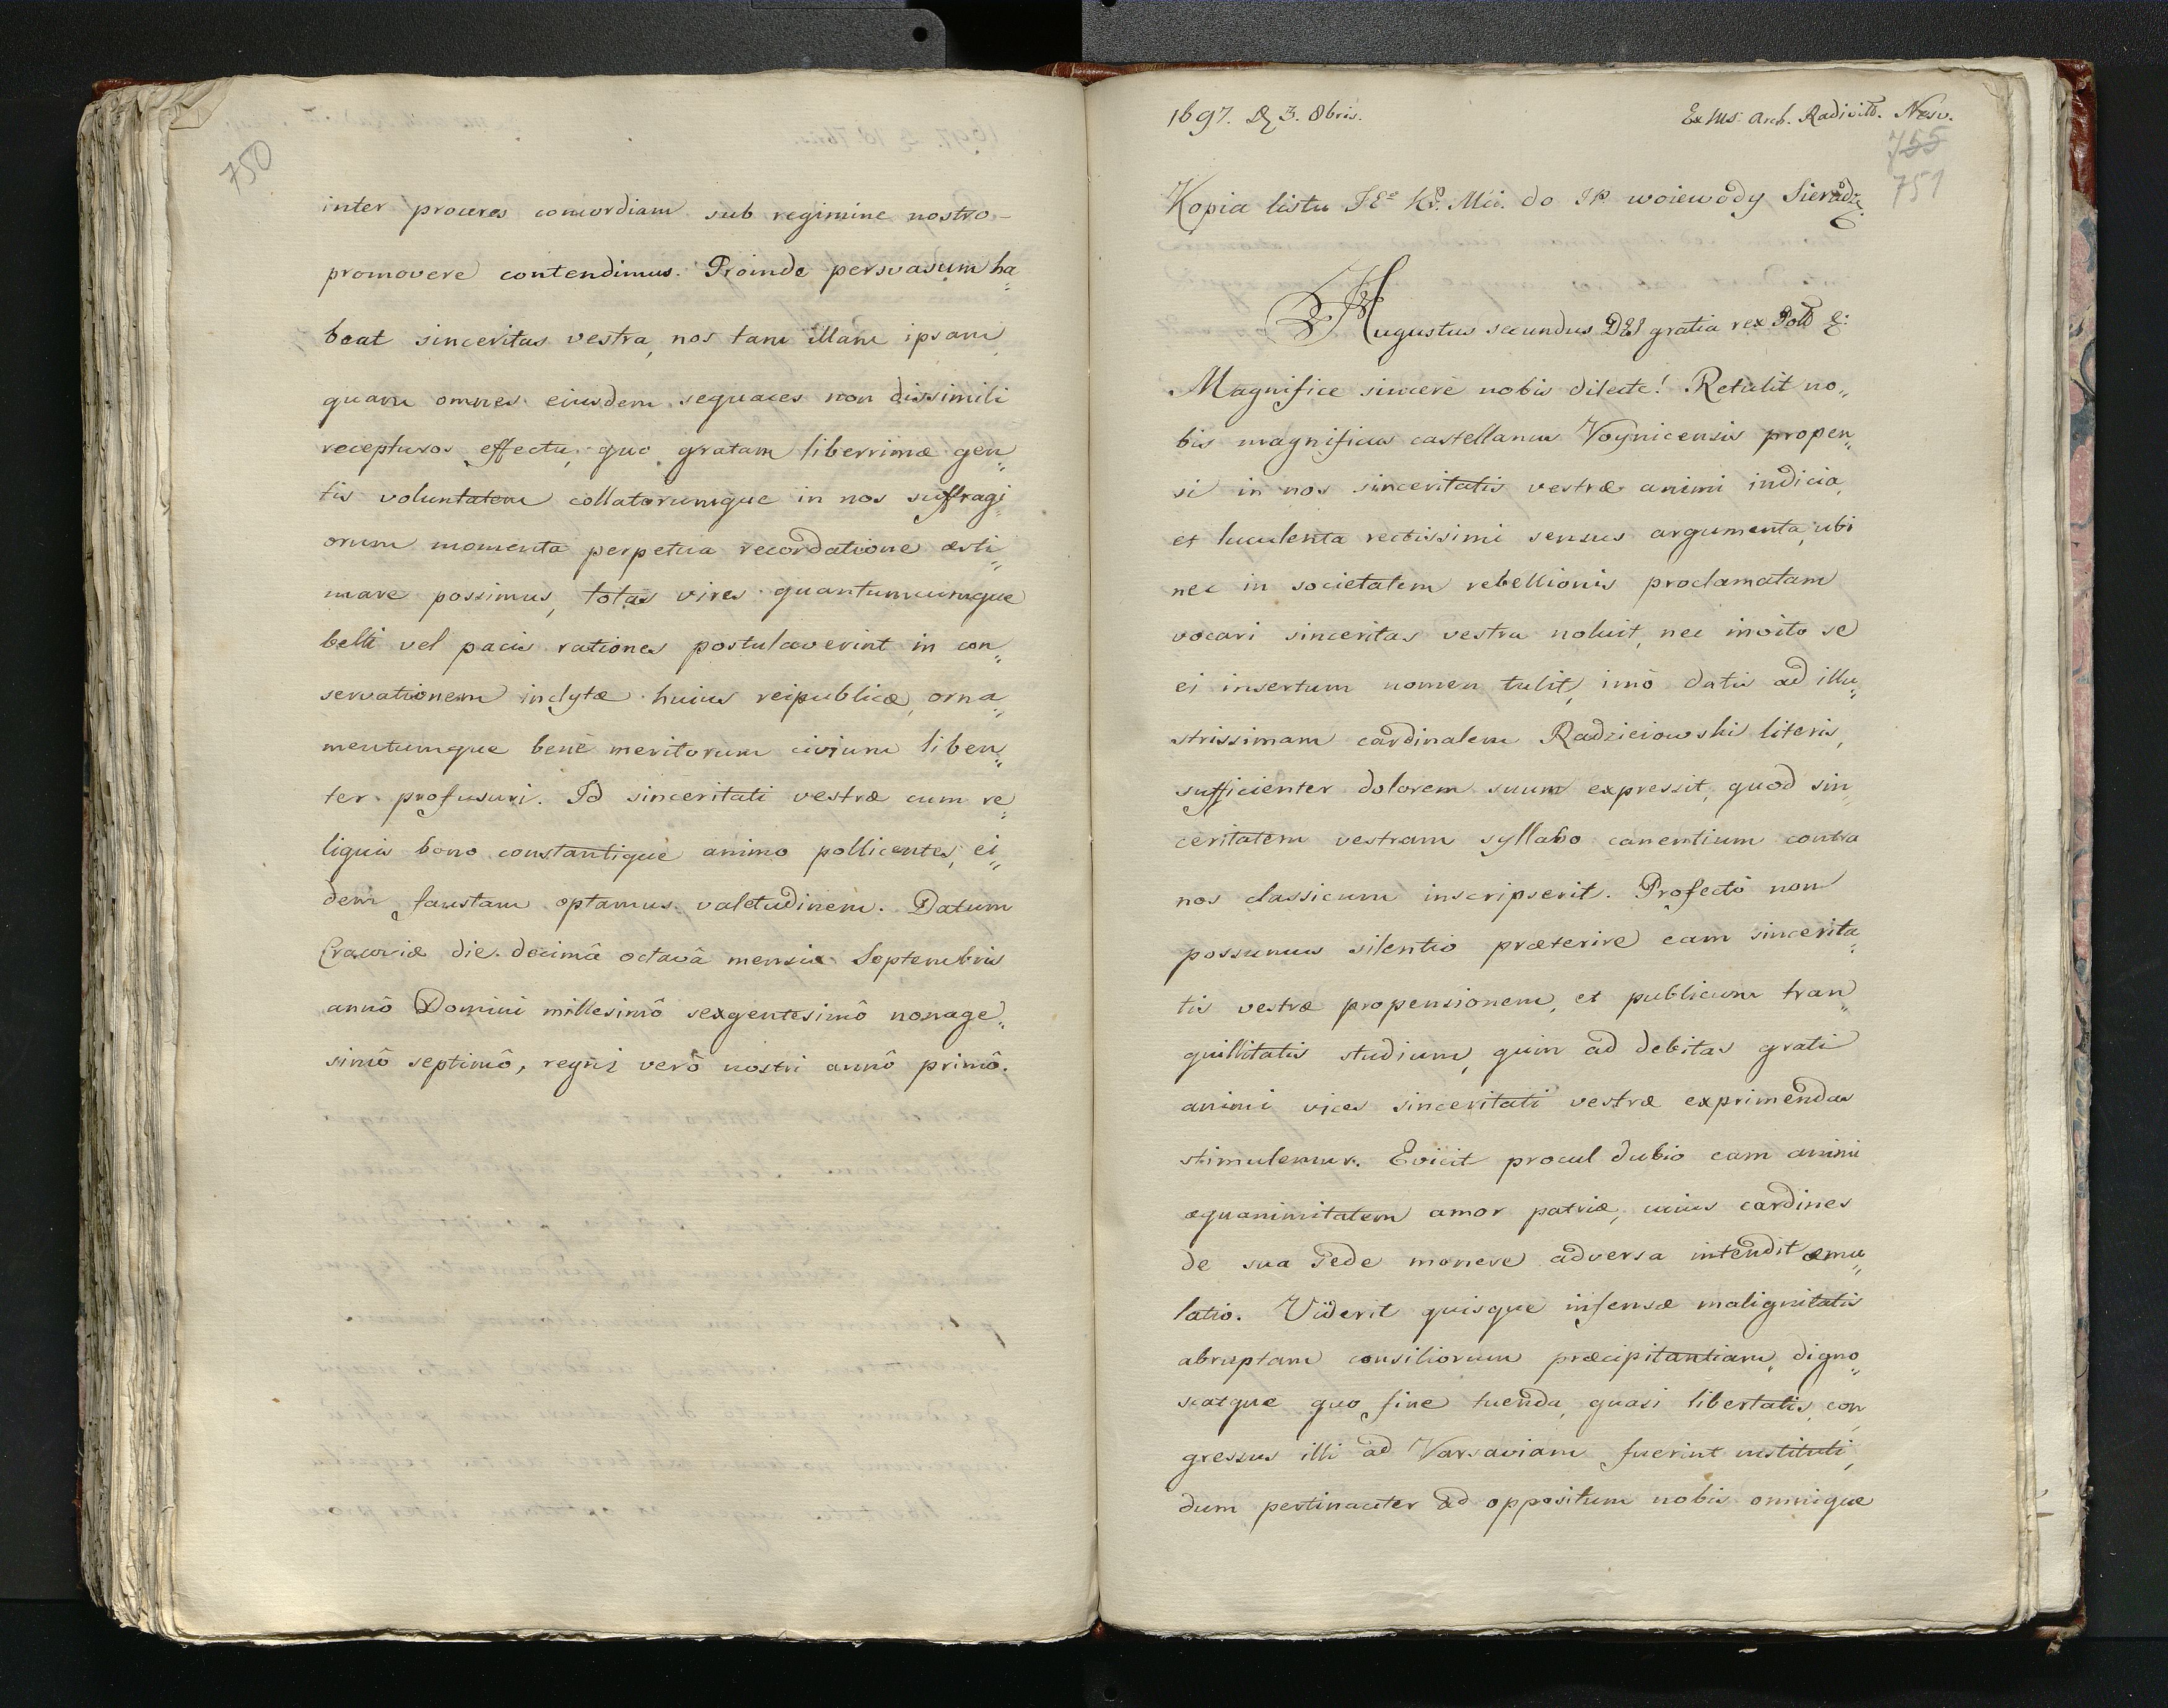 750
inter proceres concordiam sub regimine nostro -
promovere contendimus. Proinde persvasum ha„
beat sinceritas vestra, nos tam illam ipsam
quam omnes eiusdem sequaces non dissimili
recepturos effectu, quo gratam liberrimæ gen„
tis voluntatem collatorumque in nos suffragi„
orum momenta perpetua recordatione æsti„
mare possimus, totas vires quantumcumque
belli vel pacis rationes postulaverint in con„
servationem inclytæ huius reipublicæ, orna„
mentumque benè meritorum civium liben„
ter profusuri. Id sinceritati vestræ cum re„
liquis bono constantique animo pollicentes, ei„
dem faustam optamus valetudinem. Datum
Cracoviæ die decimâ octavâ mensis Septembris
annô Domini millesimô sexgentesimô nonage„
simô septimô, regni verò nostri annô primô.
1697. D. 3. 8bris.
Ex Ms. Arch. Radivill. Nesv.
755
751
Kopia listu JEo Kr. Mci. do JP. woiewody Sieradz.
Augustus secundus DEI gratia rex Poll &:
Magnifice sincerè nobis dilecte! Retulit no„
bis magnificus castellanus Voynicensis propen„
si in nos sinceritatis vestræ animi indicia,
et luculenta rectissimi sensus argumenta, ubi
nec in societatem rebellionis proclamatam
vocari sinceritas vestra noluit, nec invito se
ei insertum nomen tulit, imò datis ad illu„
strissimam cardinalem Radzieiowski literis,
sufficienter dolorem suum expressit, quod sin„
ceritatem vestram syllabo canentium contra
nos classicum inscripserit. Profectò non
possumus silentio præterire eam sincerita„
tis vestræ propensionem, et publicum tran„
quillitatis studium, quin ad debitas grati
animi vices sinceritati vestræ exprimendas
stimulemur. Evicit procul dubio eam animi
æquanimitatem amor patriæ, cuius cardines
de sua sede movere adversa intendit æmu„
latio. Viderit quisque infensæ malignitatis
abruptam consiliorum præcipitantiam, digno„
scatque quo fine tuenda quasi libertatis con„
gressus illi ad Varsaviam fuerint instituti,
dum pertinaciter ad oppositum nobis omnique